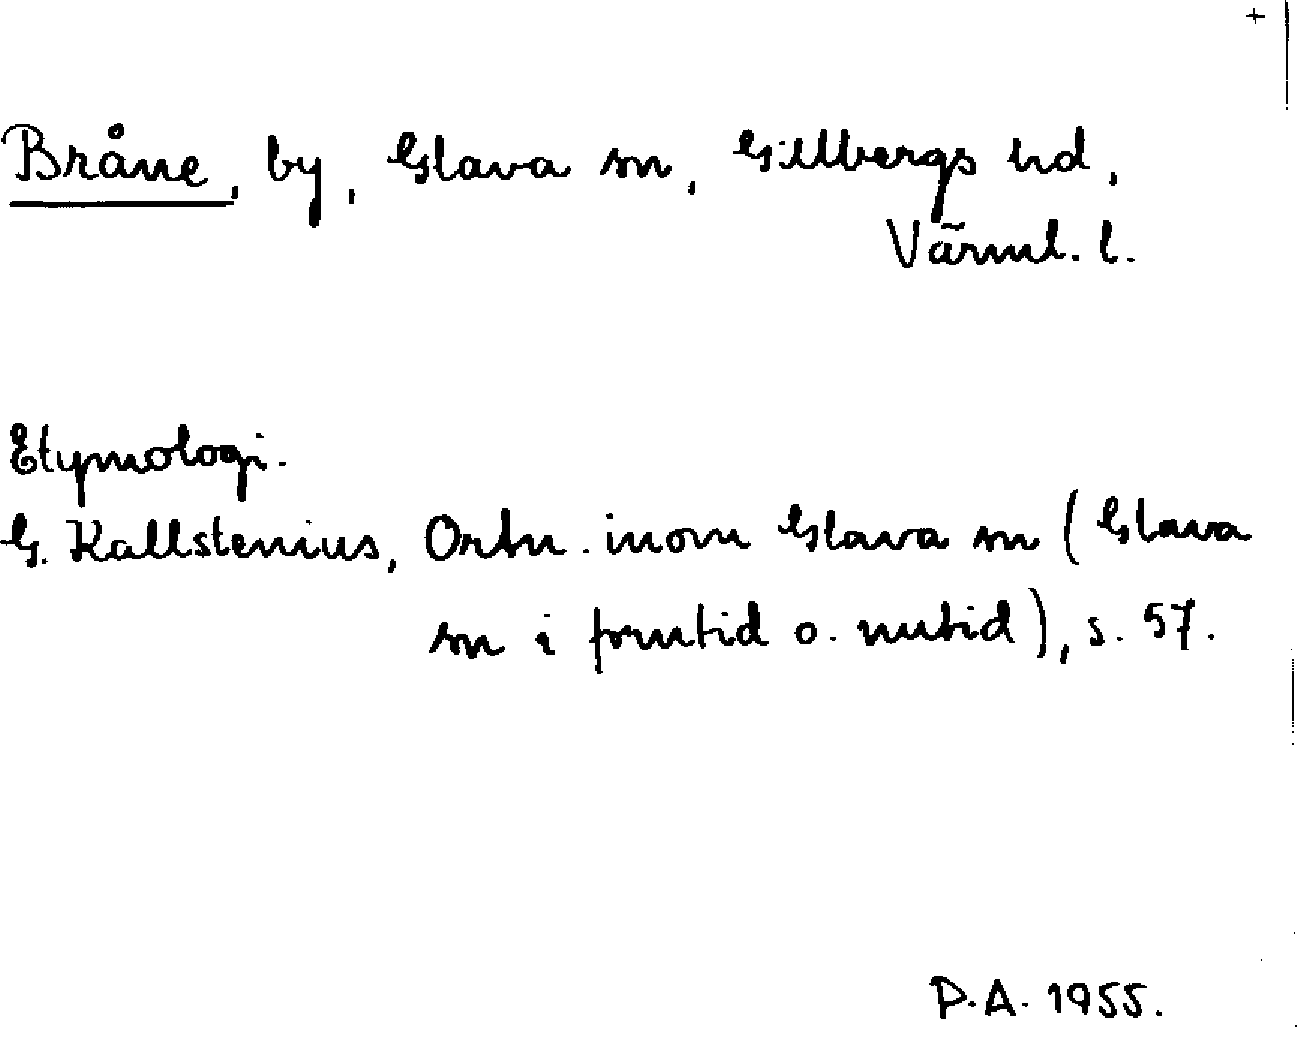 +
Bråne, by, Glava sn, Gillbergs hd,
Värml. l.
Etymologi.
G. Kallstenius, Ortn. inom Glava sn (Glava
sn i forntid o. nutid), s. 57.
P.A. 1955.